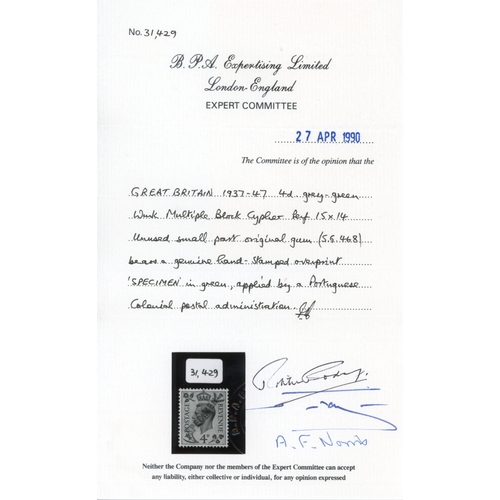 No. 31,429
B.P.A. Expertising Limited
London-England
EXPERT COMMITTEE
27 APR 1990
The Committee is of the opinion that the
GREAT BRITAIN 1937-47 4d grey-green
Wmk Multiple Block Cypher Perf 15 x 14
Unused small part original gum (S.G. 468)
bears a genuine hand-stamped overprint
'SPECIMEN' in green, applied by a Portuguese
Colonial postal administration.
31,429
POSTAGE REVENUE
4d
A. F. Norris
Neither the Company nor the members of the Expert Committee can accept
any liability, either collective or individual, for any opinion expressed